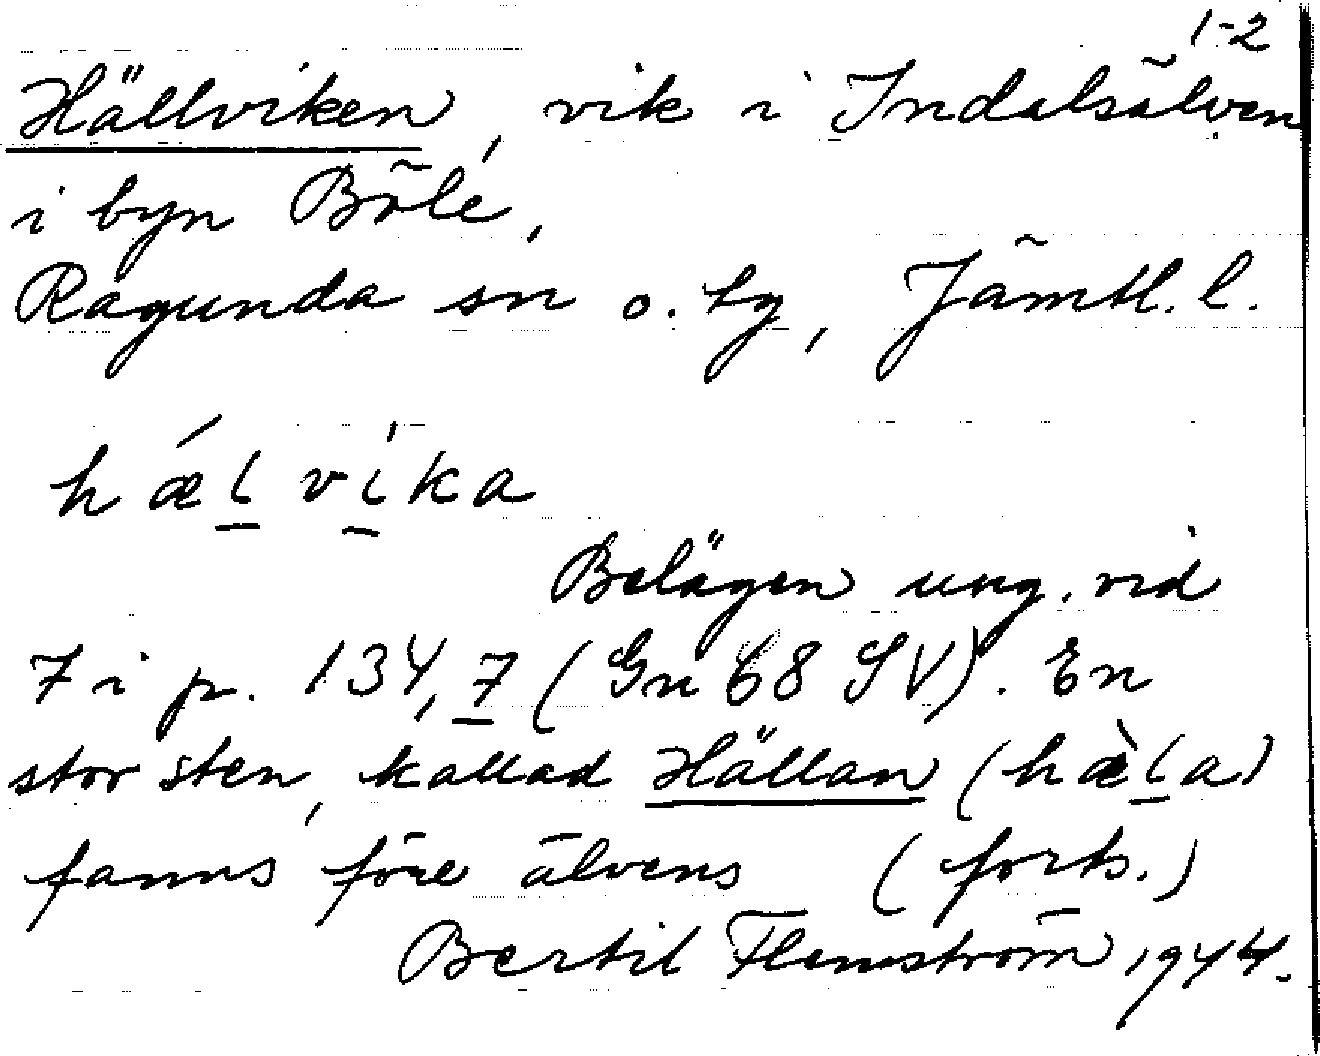 1-2
Hällviken, vik i Indalsälven
i byn Böle,
Ragunda sn o. tg, Jämtl. l.
hǽl̲ví̲ka
Belägen ung. vid
7 i p. 134,7 (Gn 68 SV). En
stor sten, kallad Hällan (hæ̀l̲a)
fanns före älvens (forts.)
Bertil Flemström 1944.